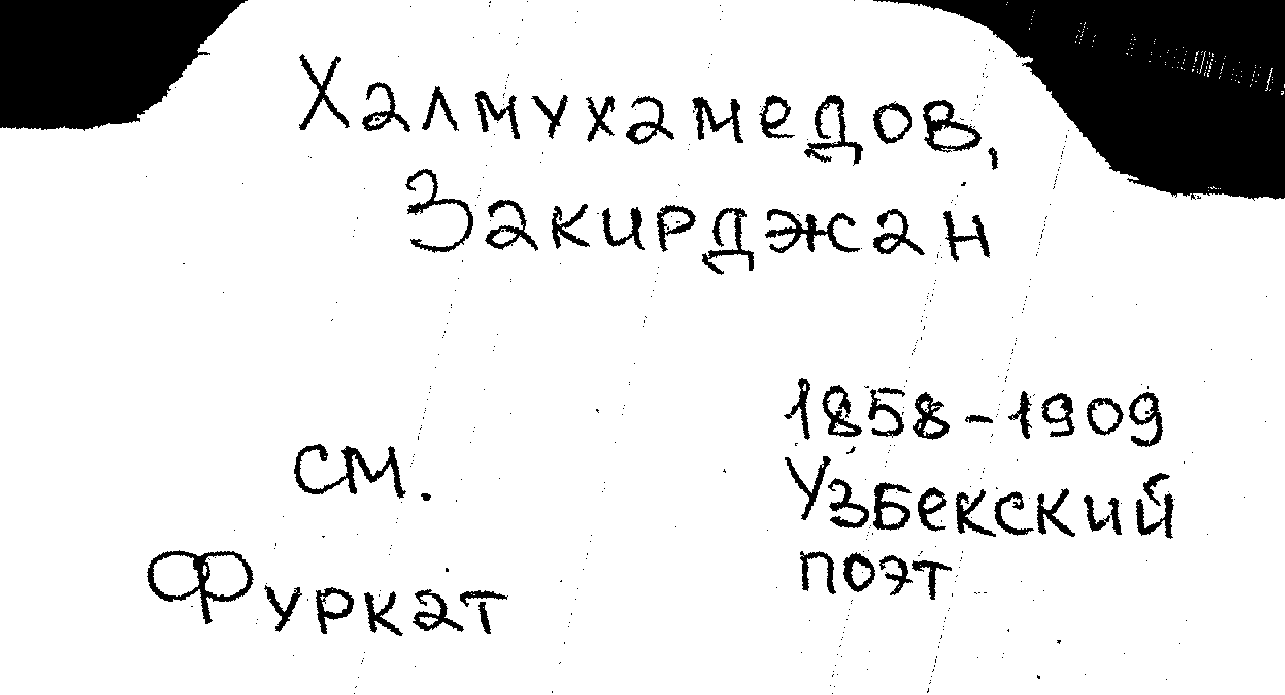 Халмухамедов,
Закирджан
1858-1909
см.
Узбекский
поэт
Фуркат